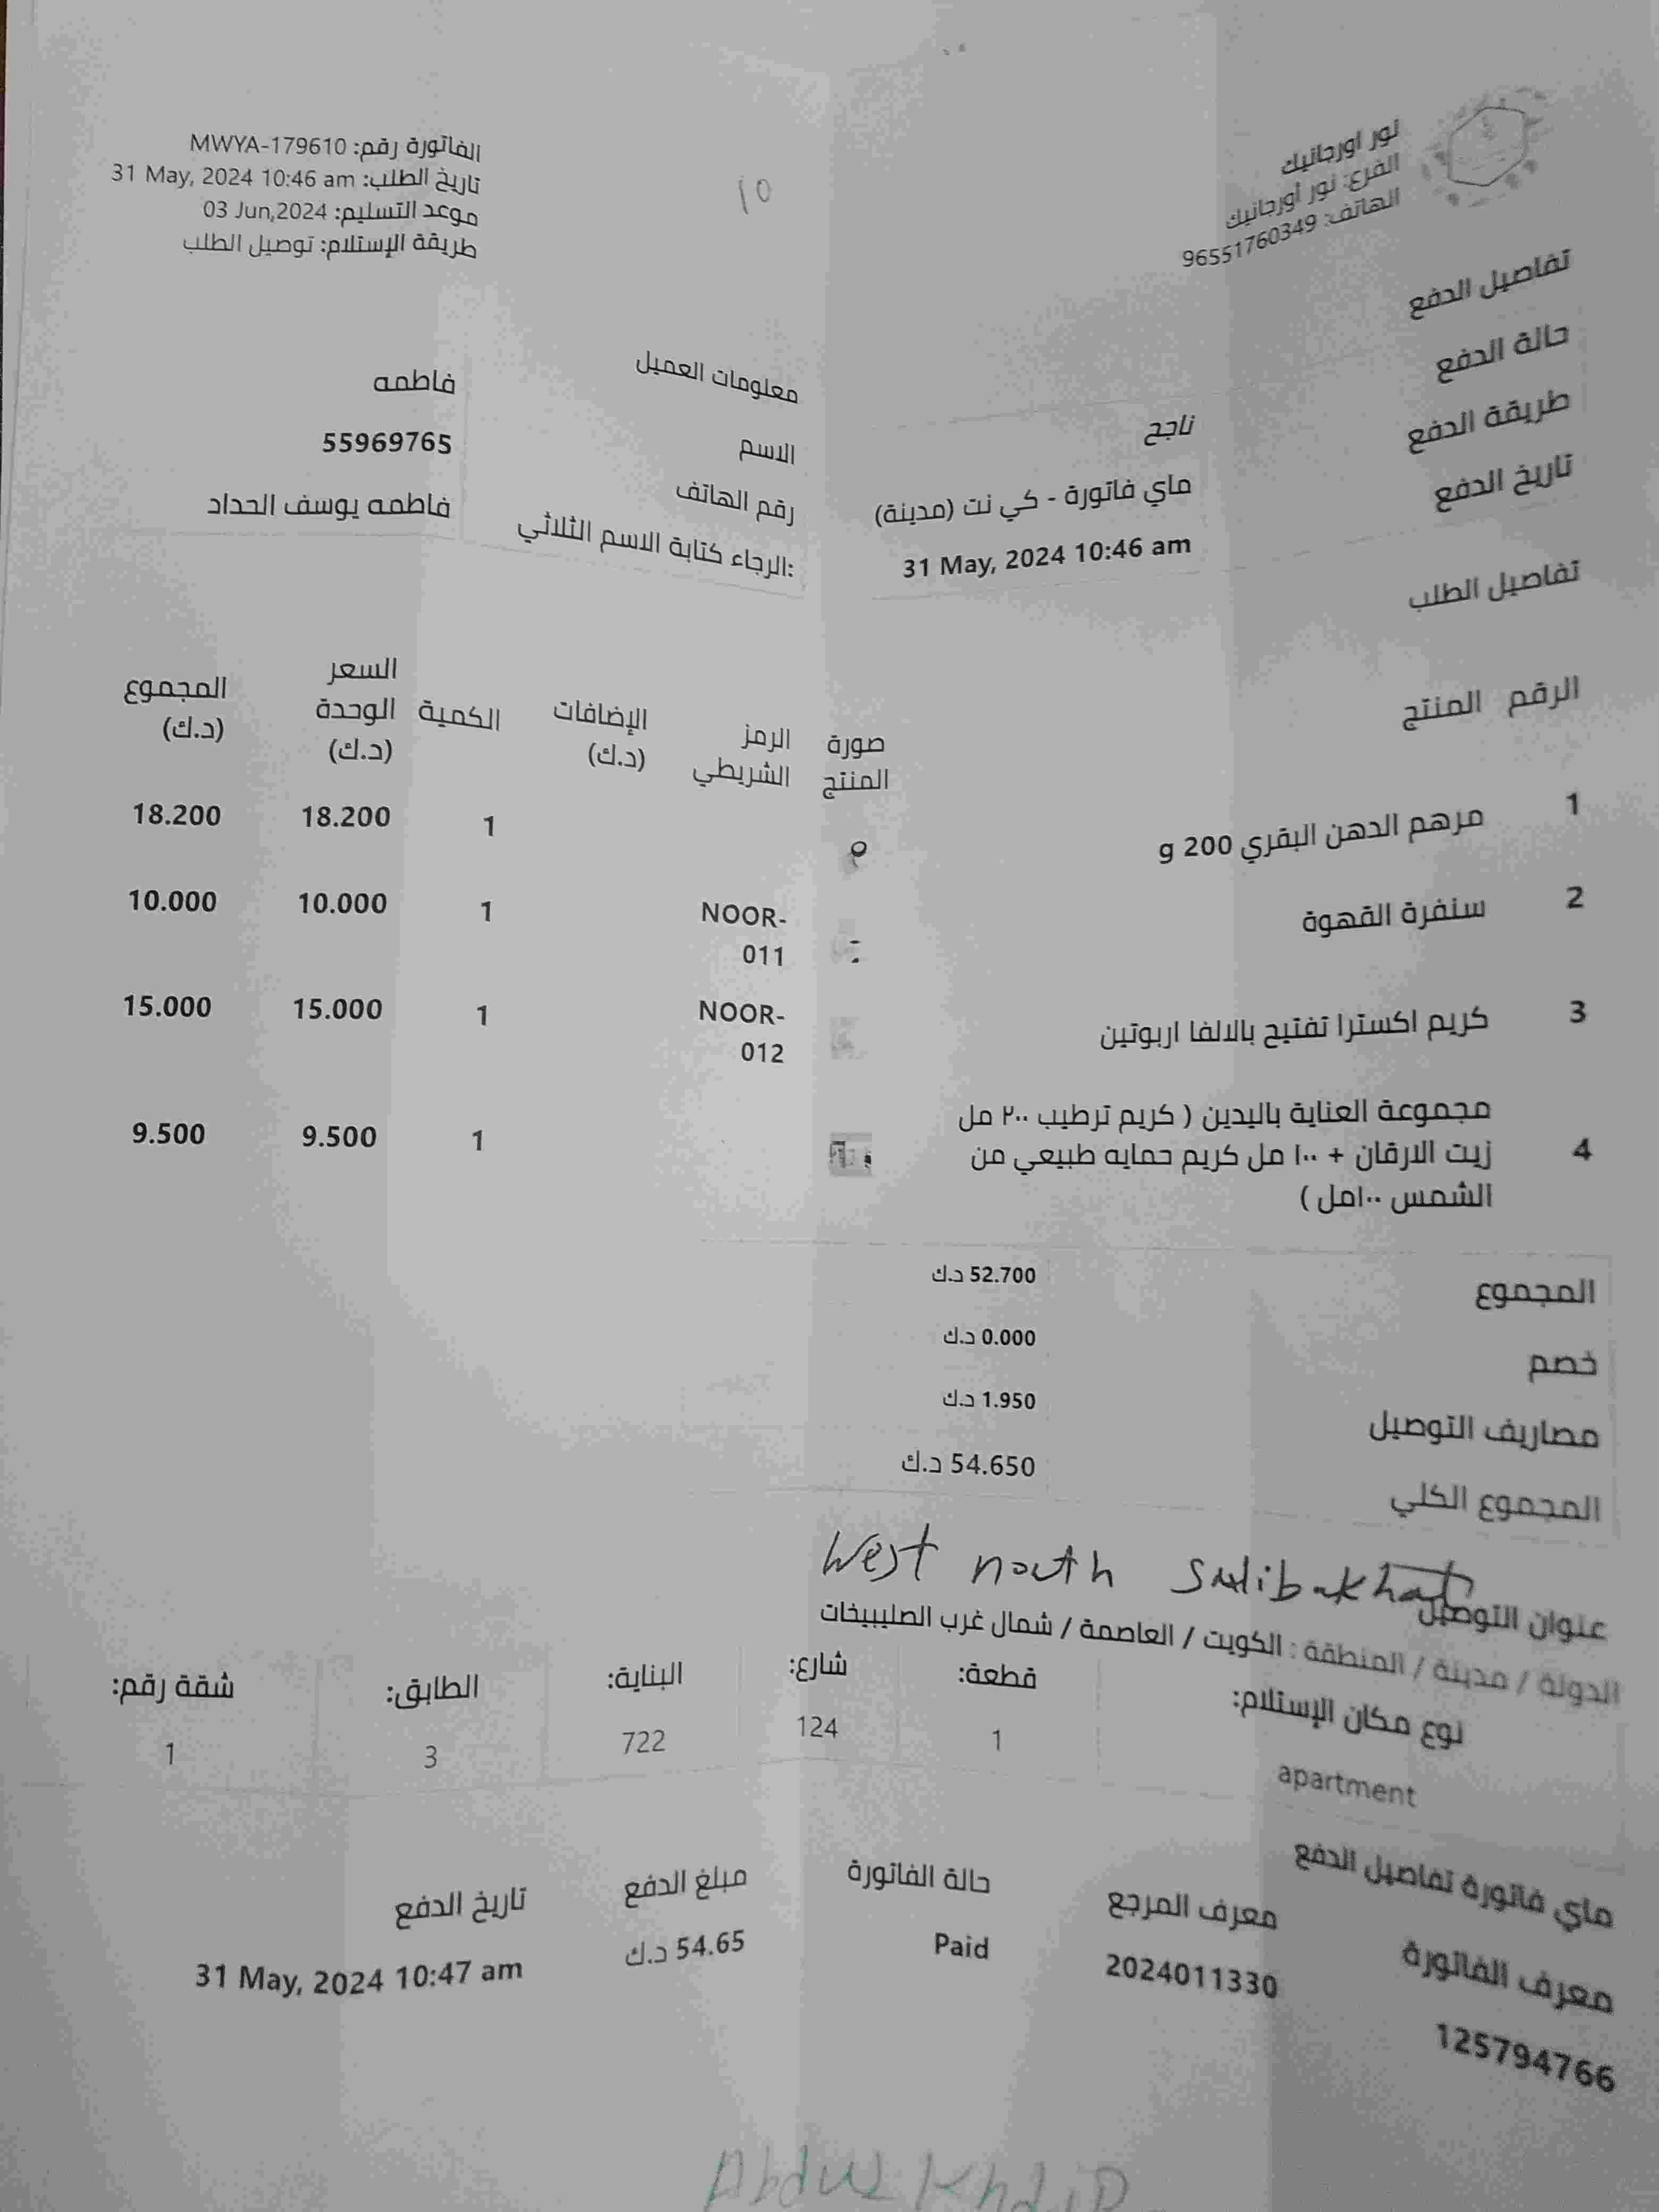 نور اورجانيك
الفرع: نور أورجانيك
الهاتف: 96551760349
الفاتورة رقم: MWYA-179610
تاريخ الطلب: 31 May, 2024 10:46 am
موعد التسليم: 03 Jun,2024
طريقة الإستلام: توصيل الطلب
10
تفاصيل الدفع
حالة الدفع ناجح
طريقة الدفع ماي فاتورة - كي نت (مدينة)
تاريخ الدفع 31 May, 2024 10:46 am
معلومات العميل
الاسم فاطمه
رقم الهاتف 55969765
الرجاء كتابة الاسم الثلاثي: فاطمه يوسف الحداد
تفاصيل الطلب
الرقم المنتج صورة المنتج الرمز الشريطي الإضافات (د.ك) الكمية السعر الوحدة (د.ك) المجموع (د.ك)
1 مرهم الدهن البقري 200 g 1 18.200 18.200
2 سنفرة القهوة NOOR-011 1 10.000 10.000
3 كريم اكسترا تفتيح بالالفا اربوتين NOOR-012 1 15.000 15.000
مجموعة العناية باليدين ( كريم ترطيب ٢٠٠ مل
4 زيت الارقان + ١٠٠ مل كريم حمايه طبيعي من 1 9.500 9.500
الشمس ١٠٠مل )
المجموع 52.700 د.ك
خصم 0.000 د.ك
مصاريف التوصيل 1.950 د.ك
المجموع الكلي 54.650 د.ك
West north Sulibakhat
عنوان التوصيل
الدولة / مدينة / المنطقة : الكويت / العاصمة / شمال غرب الصليبيخات
نوع مكان الإستلام: قطعة: شارع: البناية: الطابق: شقة رقم:
apartment 1 124 722 3 1
ماي فاتورة تفاصيل الدفع
معرف الفاتورة معرف المرجع حالة الفاتورة مبلغ الدفع تاريخ الدفع
125794766 2024011330 Paid 54.65 د.ك 31 May, 2024 10:47 am